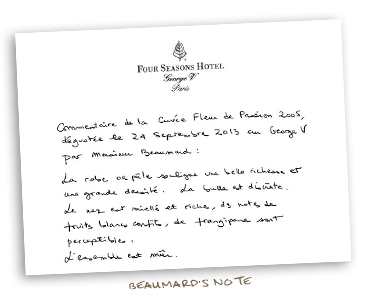 FOUR SEASONS HOTEL
George V
Paris
Commentaire de la Cuvée Fleur de Passion 2005,
dégustée le 24 Septembre 2013 au George V
par Monsieur Beaumard :
La robe or pâle souligne une belle richesse et
une grande densité. La bulle est discrète.
Le nez est miellé et riche, ds notes de
fruits blancs confits, de frangipane sont
perceptibles.
L'ensemble est mûr.
BEAUMARD'S NOTE